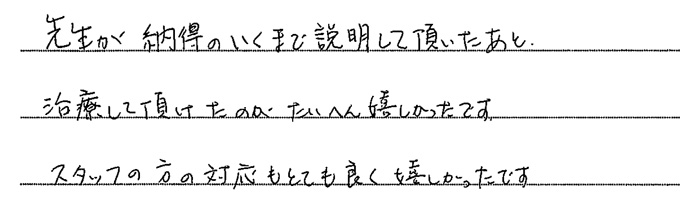 先生が納得のいくまで説明して頂いたあと.
治療して頂けたのがたいへん嬉しかったです.
スタッフの方の対応もとても良く嬉しかったです